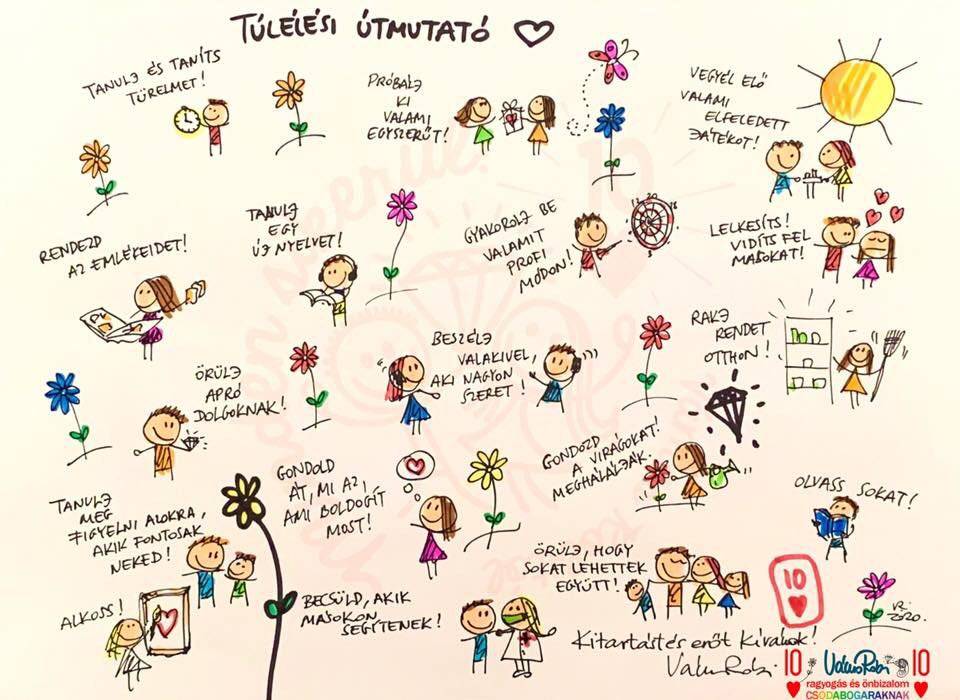 TÚLÉLÉSI ÚTMUTATÓ
TANULJ ÉS TANÍTS
TÜRELMET!
PRÓBÁLJ
KI
VALAMI
EGYSZERŰT!
VEGYÉL ELŐ
VALAMI
ELFELEDETT
JÁTÉKOT!
RENDEZD
AZ EMLÉKEIDET!
TANULJ
EGY
ÚJ NYELVET!
GYAKOROLJ BE
VALAMIT
PROFI
MÓDON!
LELKESÍTS!
VIDÍTS FEL
MÁSOKAT!
ÖRÜLJ
APRÓ
DOLGOKNAK!
BESZÉLJ
VALAKIVEL,
AKI NAGYON
SZERET!
RAKJ
RENDET
OTTHON!
TANULJ
MEG
FIGYELNI AZOKRA,
AKIK FONTOSAK
NEKED!
GONDOLD
ÁT, MI AZ,
AMI BOLDOGÍT
MOST!
GONDOZD
A VIRÁGOKAT!
MEGHÁLÁLJÁK.
OLVASS SOKAT!
ALKOSS!
BECSÜLD, AKIK
MÁSOKON
SEGÍTENEK!
ÖRÜLJ, HOGY
SOKAT LEHETTEK
EGYÜTT!
10
VR.
2020.
Kitartást és erőt kívánok!
Válus Robi
10 Válus Robi 10
ragyogás és önbizalom
CSODABOGARAKNAK